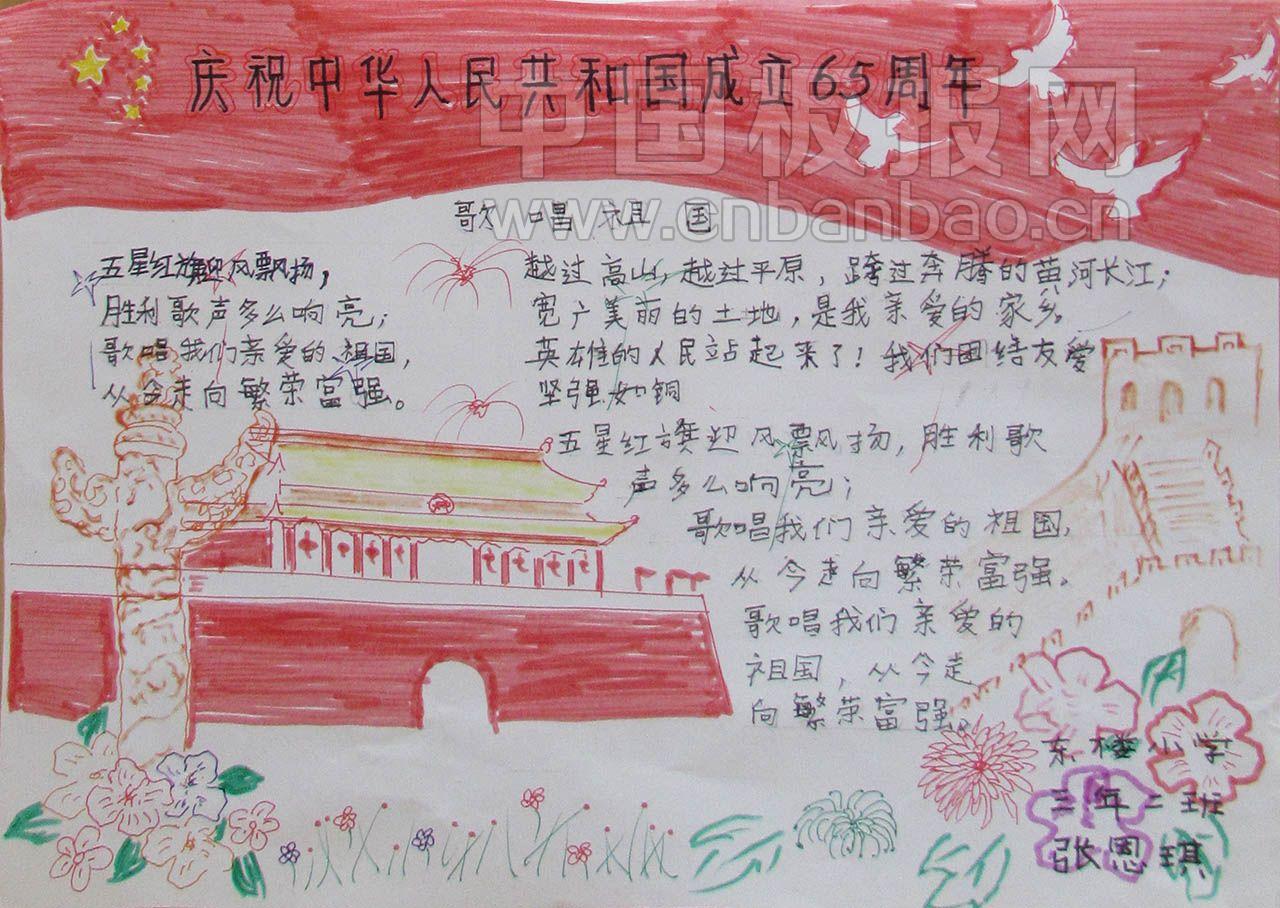 庆祝中华人民共和国成立65周年
中国板报网
www.cnbanbao.cn
歌唱祖国
五星红旗迎风飘扬，
胜利歌声多么响亮；
歌唱我们亲爱的祖国，
从今走向繁荣富强。
越过高山，越过平原，跨过奔腾的黄河长江；
宽广美丽的土地，是我亲爱的家乡。
英雄的人民站起来了！我们团结友爱
坚强如钢
五星红旗迎风飘扬，胜利歌
声多么响亮；
歌唱我们亲爱的祖国，
从今走向繁荣富强。
歌唱我们亲爱的
祖国，从今走
向繁荣富强。
东楼小学
三年二班
张恩琪